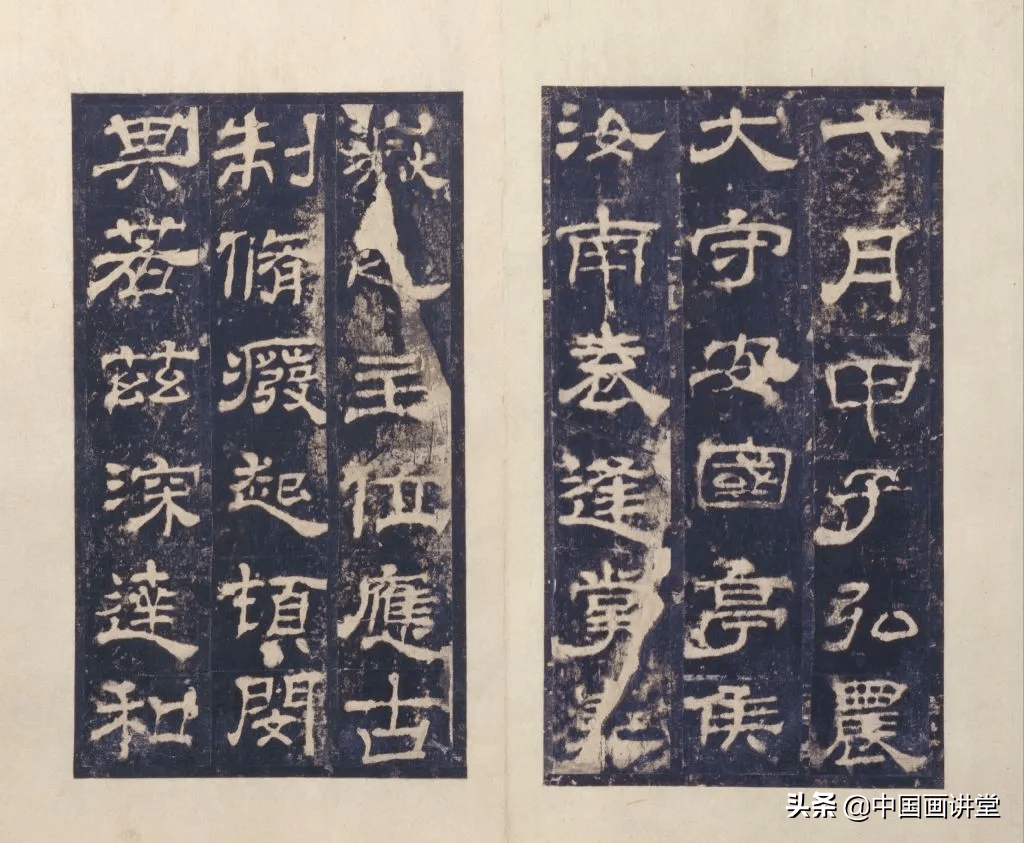 七月甲子弘農
大守安國亭侯
汝南袁逢掌
嶽之主位應古
制脩癈起頓閔
其若茲深達和
头条 @中国画讲堂